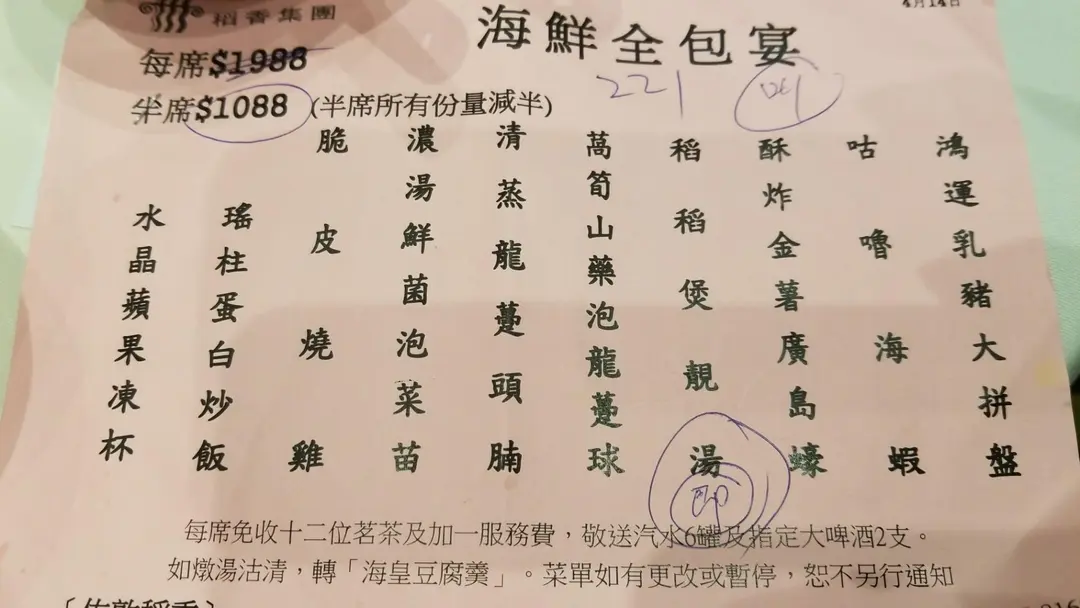 稻香集團
4月14日
海鮮全包宴
每席$1988
半席$1088 (半席所有份量減半)
221
鴻運乳豬大拼盤
咕嚕海蝦
酥炸金薯廣島蠔
稻稻煲靚湯
即
萵筍山藥泡龍躉球
清蒸龍躉頭腩
濃湯鮮菌泡菜苗
脆皮燒雞
瑤柱蛋白炒飯
水晶蘋果凍杯
每席免收十二位茗茶及加一服務費，敬送汽水6罐及指定大啤酒2支。
如燉湯沽清，轉「海皇豆腐羹」。菜單如有更改或暫停，恕不另行通知